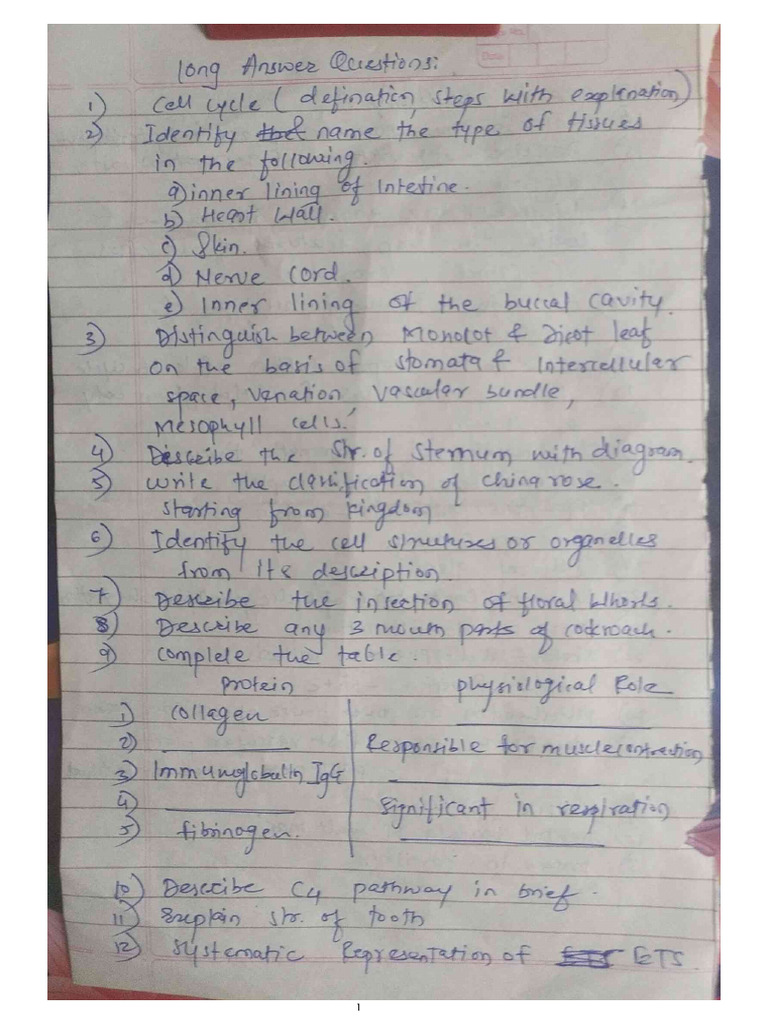 long Answer Questions:
1) Cell cycle ( defination, steps with explenation)
2) Identify name the type of tissues
in the following.
a) inner lining of Intestine.
b) Heart Wall.
c) Skin.
d) Nerve cord.
e) Inner lining of the buccal cavity.
3) Distinguish between Monolot & Dicot leaf
on the basis of stomata & Intercellular
space, venation, vascular bundle,
Mesophyll cells.
4) Describe the str. of sternum with diagram.
5) write the classification of china rose.
starting from kingdom
6) Identify the cell structures or organelles
from Its description.
7) Describe the insection of floral whorls.
8) Describe any 3 mouth parts of cockroach.
9) complete the table.
protein physiological Role
1) collagen ________
2) ________ Responsible for muscle contraction
3) Immunglobulin IgG ________
4) ________ significant in respiration
5) fibrinogen. ________
10) Describe C4 pathway in brief.
11) Explain str. of tooth
12) Systematic Representation of ETS.
1